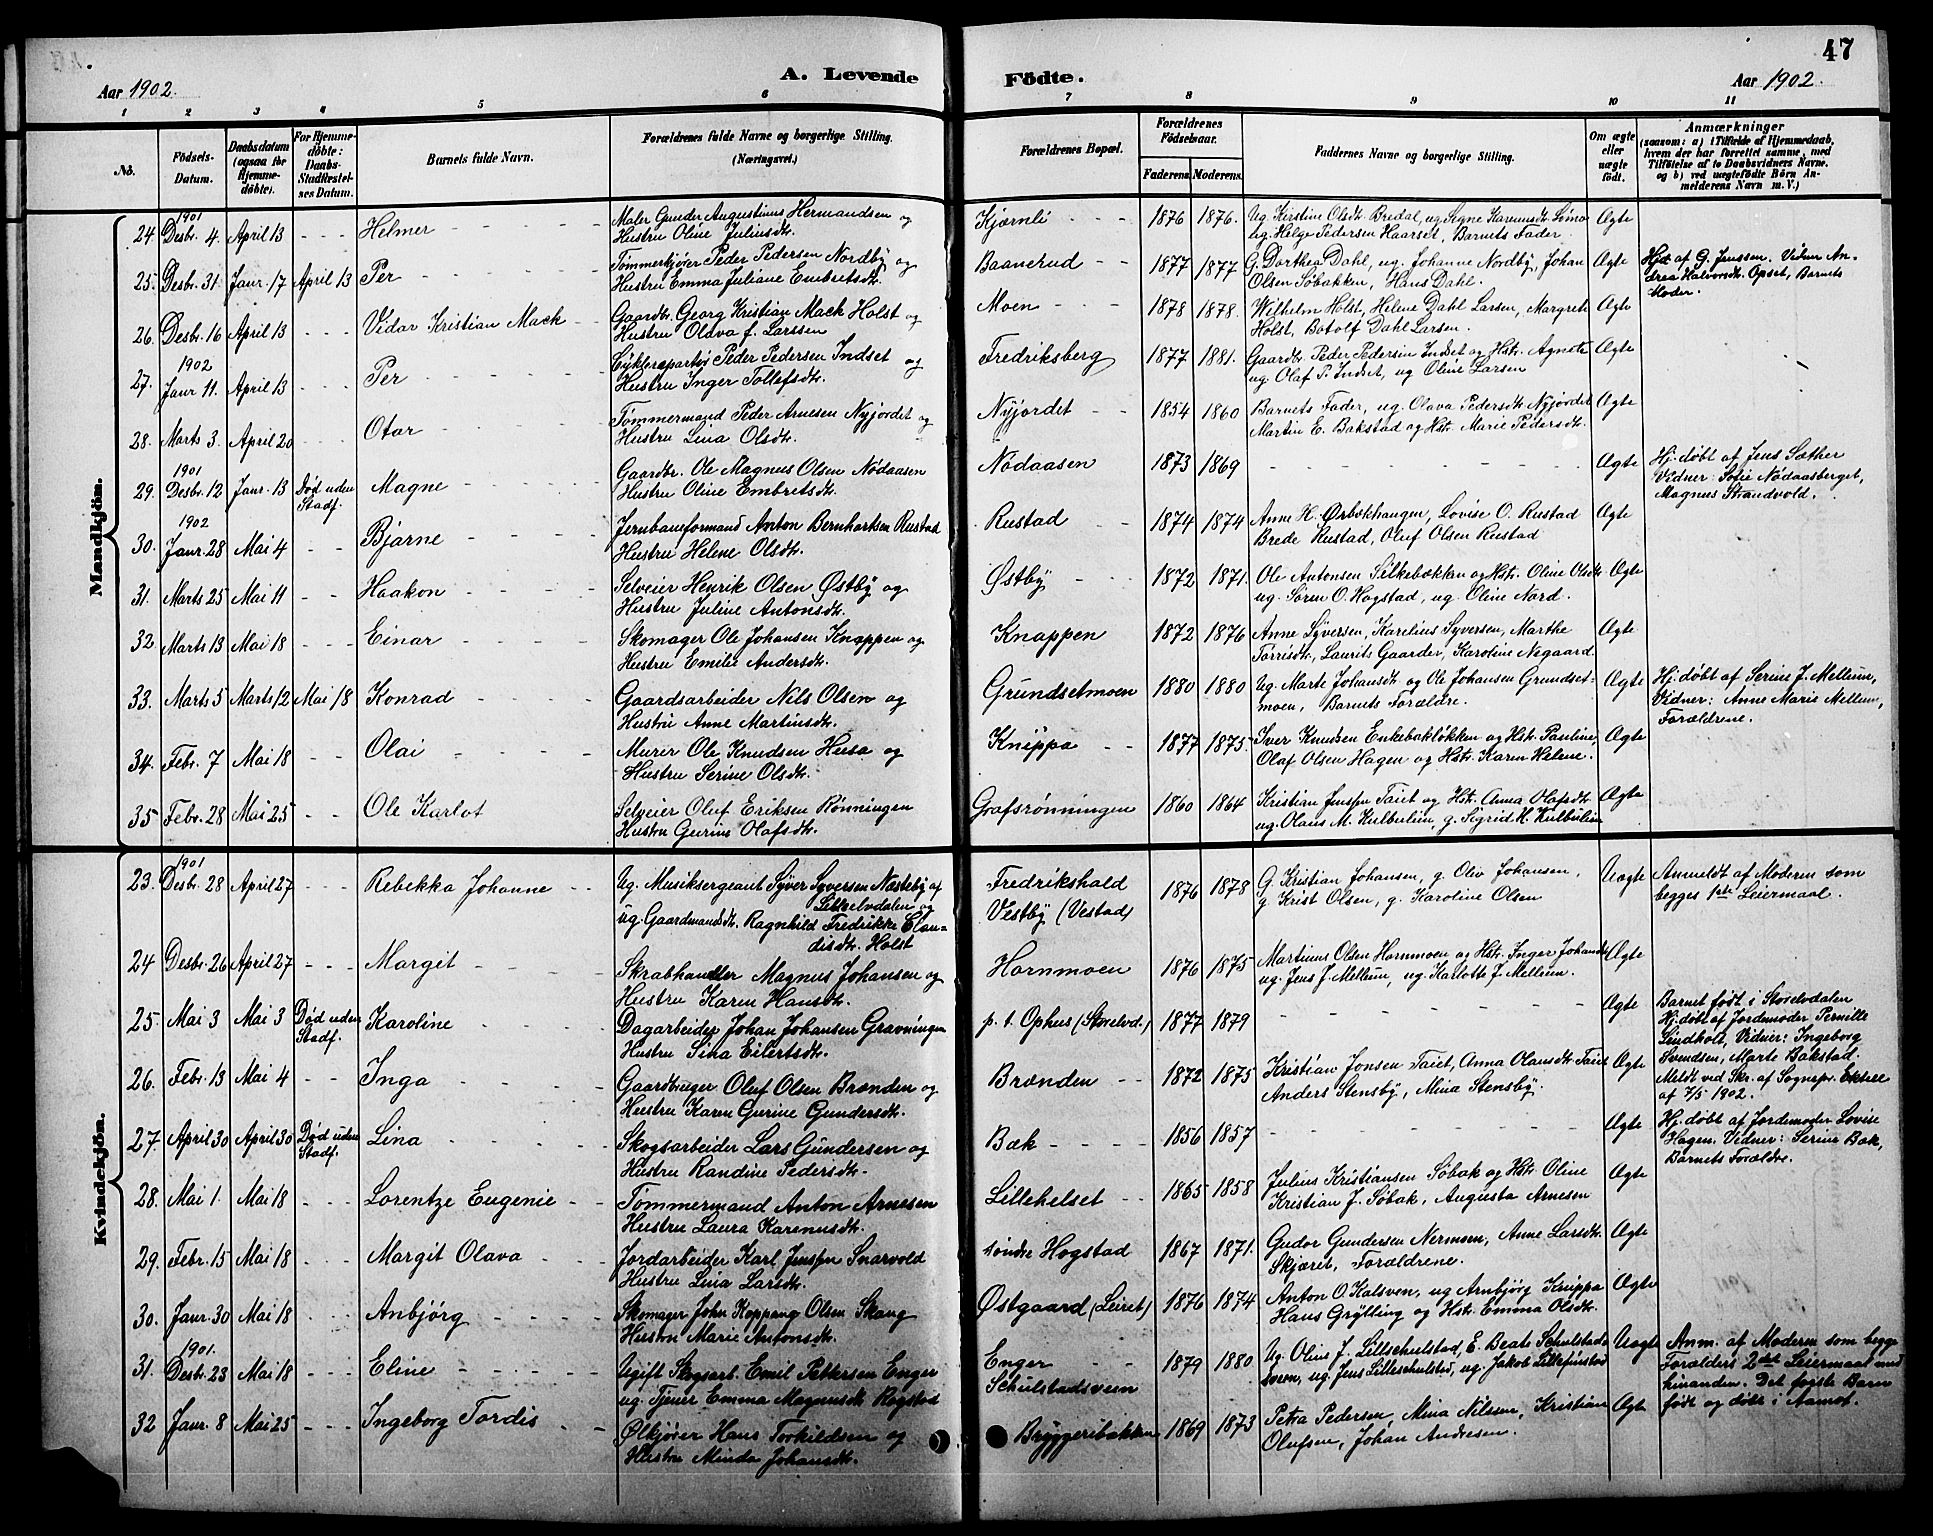 47
Aar 1902.
A. Levende
Födte.
Aar 1902.
1 2 3 4 5 6 7 8 9 10 11
No.
Födsels-
Datum.
Daabsdatum
(ogsaa for
Hjemme-
døbte).
For Hjemme-
døbte:
Daabs-
Stadfæstel-
ses Datum.
Barnets fulde Navn.
Forældrenes fulde Navne og borgerlige Stilling.
(Næringsvei.)
Forældrenes Bopæl.
Forældrenes
Födselsaar.
Faderens.
Moderens.
Faddernes Navne og borgerlige Stilling.
Om ægte
eller
uægte
født.
Anmærkninger
(saasom: a) i Tilfælde af Hjemmedaab,
hvem der har forrettet samme, med
Tilföielse af to Daabsvidners Navne,
og b) ved uægtefödte Börn An-
melderens Navn m. V.)
Mandkjön.
1901
24. Desbr. 4. April 13 - - - Helmer - - - Maler Gunder Augustinus Hermandsen og
Hustru Oline Juliusdt.
Kjærnli - - - 1876 1876. Ug. Kirstine Olsdt. Bredal, ug. Signe Karinusdt. Lømo Ægte
ug. Helge Pedersen Haarset, Barnets Fader.
25. Desbr. 31 Janr. 17 April 13 Per - - - Tømmerkjører Peder Pedersen Nordby og
Hustru Emma Juliane Embretsdt.
Baanerud - - 1877 1877 G. Dorthea Dahl, ug. Johanne Nordby, Johan Ægte
Olsen Søbakken, Hans Dahl.
Hjd. af G. Jenssen. Vidner An-
drea Halvorsdt. Opset, Barnets
Moder.
26. Desbr. 16 April 13 - - - Vidar Kristian Mack - - Gaardbr. Georg Kristian Mack Holst og
Hustru Oldva f. Larssen
Moen - - - 1878 1878. Wilhelm Holst, Helene Dahl Larsen, Margrete Ægte
Holst, Botolf Dahl Larsen.
1902
27. Janr 11. April 13 - - - Per - - - Cyklereparatør Peder Pedersen Indset og
Hustru Inger Tollefsdt.
Fredriksberg 1877 1881. Gaardbr. Peder Pedersen Indset og Hstr. Agnete Ægte
ug. Olaf P. Indset, ug Oline Larsen
28. Marts 3. April 20 - - - Otar - - - Tømmermand Peder Arnesen Nyjordet og
Hustru Lina Olsdt.
Nyjordet - - 1854 1860 Barnets Fader, ug. Olava Pedersdt. Nyjordet Ægte
Martin E. Bakstad og Hstr. Marie Pedersdt.
1901
29. Desbr. 12 Janr. 13 Død uden
Stadf. Magne - - - Gaardbr. Ole Magnus Olsen Nødaasen
Hustru Oline Embretsdt.
Nødaasen 1873 1869 - - - Ægte
Hj. døbt af Jens Sæther
Vidner: Sofie Nødaasberget,
Magnus Strandvold.
1902
30. Janr. 28 Mai 4 - - Bjarne - - - Jernbaneformand Anton Bernhartsen Rustad
Hustru Helene Olsdt.
Rustad - - 1874 1874 Anne H. Ørbækhaugen, Lovise O. Rustad Ægte
Brede Rustad, Oluf Olsen Rustad
31. Marts 25 Mai 11 - - - Haakon - - - Selveier Henrik Olsen Østby og
Hustru Juline Antonsdt.
Østby - - - 1872 1871. Ole Antonsen Silkebækken og Hstr. Oline Olsdt. Ægte
ug. Søren O. Hogstad, ug. Oline Nord.
32. Marts 13 Mai 18 - - - Einar - - - Skomager Ole Johansen Knappen og
Hustru Emilie Andersdt.
Knappen 1872 1876 Anne Syversen, Karelius Syversen, Marthe Ægte
Tørrisdt., Laurits Gaarder, Karoline Negaard
33. Marts 5 Marts 12 Mai 18 Konrad - - - Gaardsarbeider Nils Olsen og
Hustru Anne Martinsdt.
Grundsetmoen 1880 1880 Ug. Marte Johansdt. og Ole Johansen Grundset- Ægte
moen, Barnets Forældre.
Hj. døbt af Serine J. Mellum,
Vidner: Anne Marie Mellum,
Forældrene.
34. Febr. 7 Mai 18 - - Olai - - - Murer Ole Knudsen Husa og
Hustru Serine Olsdt.
Knippa - - 1877 1875. Iver Knudsen Enkebakløkken og Hstr. Pauline, Ægte
Olaf Olsen Hagen og Hstr. Karen Helene.
35 Febr. 28 Mai 25 - - Ole Karlot Selveier Oluf Eriksen Rønningen
Hustru Gurine Olafsdt.
Grafsrønningen 1860 1864 Kristian Jenssen Taiet og Hstr. Anna Olafsdt. Ægte
ug. Olaus M. Kulbulien, g. Sigrid H. Kulbulien
Kvindekjön.
1901
23. Desbr. 28 April 27 - - - Rebekka Johanne - - Ug. Musiksergeant Syver Syversen Næsteby af
Lilleelvdalen og
ug. Gaardmandsdt. Ragnhild Fredrikke Clau-
disdt. Holst
Fredrikshald
Vestby (Vestad)
1876 1878 G. Kristian Johansen, g. Oliv Johansen, Uægte
g. Krist Olsen, g. Karoline Olsen
Anmeldt af Moderen som
begges 1ste Leiermaal.
24 Desbr. 26 April 27 - - - Margit - - - Skrabhandler Magnus Johansen og
Hustru Karen Hansdt.
Hornmoen 1876 1875 Martinus Olsen Hornmoen og Hstr. Inger Johansdt. Ægte
ug. Jens J. Mellum, ug. Karlotte J. Mellum.
25. Mai 3 Mai 3 Død uden
Stadf. Karoline - - - Dagarbeider Johan Johansen Gravningen
Hustru Sina Eilertsdt.
p. t. Ophus (Storelvd.) 1877 1879 - - - Ægte
Barnet født i Storelvdalen
Hj. døbt af Jordemoder Pernille
Lindholt, Vidner: Ingeborg
Svendsen, Marte Bakstad.
Meldt ved Skr. af Sognepr. Ektete
af 7/5 1902.
26. Febr. 13 Mai 4 - - Inga - - - Gaardbruger Oluf Olsen Brænden og
Hustru Karen Gurine Gundersdt.
Brænden - - 1872 1875 Kristian Jonsen Taiet, Anna Olausdt. Taiet Ægte
Anders Stensby, Mina Stensby.
27. April 30 April 30 Død uden
Stadf. Lina - - - Skogsarbeider Lars Gundersen og
Hustru Randine Pedersdt.
Bæk - - - 1856 1857 - - - Ægte
Hj. døbt af Jordemoder Lovise
Hagen. Vidner: Serine Bæk,
Barnets Forældre.
28. Mai 1. Mai 18 - - - Lorentze Eugenie - - Tømmermand Anton Arnesen
Hustru Laura Karenusdt.
Lillehelset - - 1865 1858 Julius Kristiansen Søbak og Hstr. Oline Ægte
Kristian J. Søbak, Augusta Arnesen
29. Febr. 15 Mai 18 - - - Margit Olava - - Jordarbeider Karl Jenssen Snarvold
Hustru Lina Larsdt.
søndre Hogstad 1867 1871. Gudor Gundersen Nermoen, Anne Larsdt. Ægte
Skjæret, Forældrene.
30. Janr. 30 Mai 18 - - Anbjörg - - - Skomager John Koppang Olsen Skaug
Hustru Marie Antonsdt.
Østgaard (Leiret) 1876 1874 Anton O. Kalsven, ug Arnbjörg Knippa Ægte
Hans Grytting og Hstr. Emma Olsdt.
1901.
31. Desbr. 23 Mai 18 - - - Eline - - - Ugift Skogsarb. Emil Pettersen Enger
ug. Tjener Emma Magnusdt. Rogstad
Enger - -
Schulstadsveen
1879 1880 Ug. Olius J. Lilleschulstad, E. Beate Schulstads- Uægte
veen, ug. Jens Lilleschulstad, ug. Jakob Lillefinstad
Anm. af Moderen som begge
Forældres 2det Leiermaal med
hinanden. Det første Barn
født og døbt i Aamot.
32 Janr. 8 Mai 25 - - - Ingeborg Tordis - - Ølkjører Hans Torkildsen og
Hustru Minda Johansdt.
Bryggeribakken 1869 1873 Petra Pedersen, Mina Nilssen, Kristian Ægte
Olufsen, Johan Andresen.